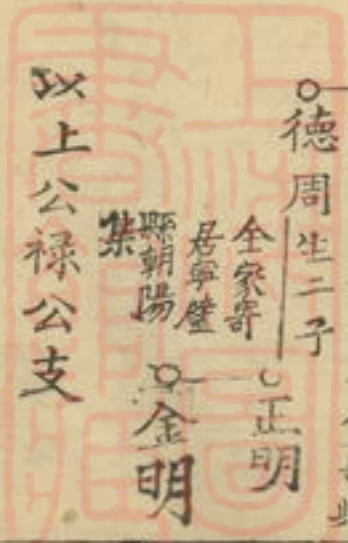 德周生二子
正明
全家寄
居寧璧
縣朝陽
集
金明
以上公禄公支